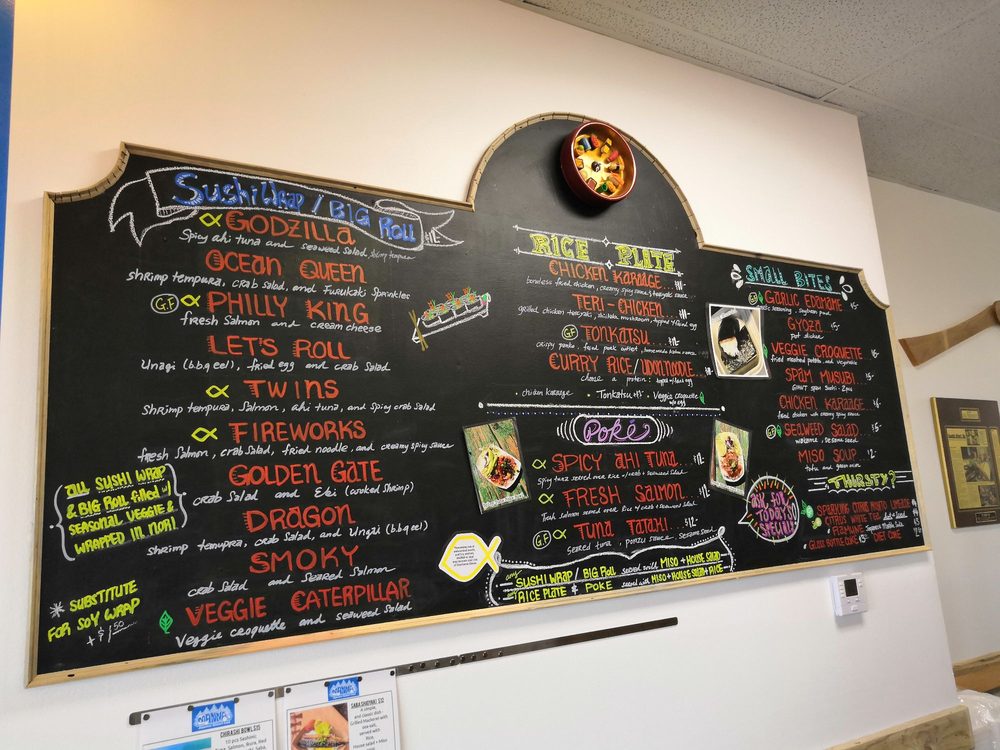 Sushi Wrap / BIG Roll
GODZILLA
Spicy ahi tuna and seaweed Salad, shrimp tempura
OCEAN QUEEN
shrimp tempura, crab Salad, and Furukaki Sprinkles
G.F PHILLY KING
fresh Salmon and cream cheese
LET'S ROLL
Unagi (b.b.q eel), fried egg and crab Salad
TWINS
Shrimp tempura, Salmon, ahi tuna, and Spicy crab Salad
FIREWORKS
fresh Salmon, crab Salad, fried noodle, and creamy spicy sauce
GOLDEN GATE
crab Salad and Ebi (cooked Shrimp)
DRAGON
Shrimp temupra, crab Salad, and Ungai (b.b.q eel)
SMOKY
crab Salad and Seared Salmon
VEGGIE CATERPILLAR
Veggie croquette and seaweed Salad
ALL SUSHI WRAP
& BIG ROLL filled w/
SEASONAL VEGGIE &
WRAPPED IN NORI
* SUBSTITUTE
FOR SOY WRAP
+ $1.50
RICE PLATE
CHICKEN KARAAGE
boneless fried chicken, creamy spicy sauce & teriyaki sauce
TERI-CHICKEN
grilled chicken teriyaki, shiitake mushroom, topped w/ fried egg
G.F TONKATSU
crispy panko, fried pork cutlet, homemade katsu sauce
CURRY RICE/UDON NOODLE
choose a protein:
chicken karaage • Tonkatsu • Veggie croquette
POKÉ
SPICY AHI TUNA
FRESH SALMON... $12
G.F TUNA TATAKI... $12
Seared tuna, ponzu sauce, Sesame seed
any SUSHI WRAP/ BIG Roll served with MISO + HOUSE SALAD
RICE PLATE & POKE served with MISO + HOUSE SALAD + RICE
SMALL BITES
GARLIC EDAMAME
GYOZA
pot sticker
VEGGIE CROQUETTE
fried mashed potato, and vegetable
SPAM MUSUBI
GIANT Spam Sushi - 2pcs
CHICKEN KARAAGE
fried chicken with creamy spicy sauce
G.F SEAWEED SALAD
wakame, sesame seed
MISO SOUP
tofu and green onion
ASK FOR
TODAY'S
SPECIAL!
THIRSTY?
SPARKLING CITRUS MOJITO LIMEADE
CITRUS WHITE TEA
RAMUNE Japanese Marble Soda
GLASS BOTTLE COKE DIET COKE
MANNA
CHIRASHI BOWL $15
10 pcs Sashimi,
MANNA
SABA SHIOYAKI $12
A simple,
and classic dish -
Grilled Mackerel with
sea salt,
served with
Rice,
House salad + Miso